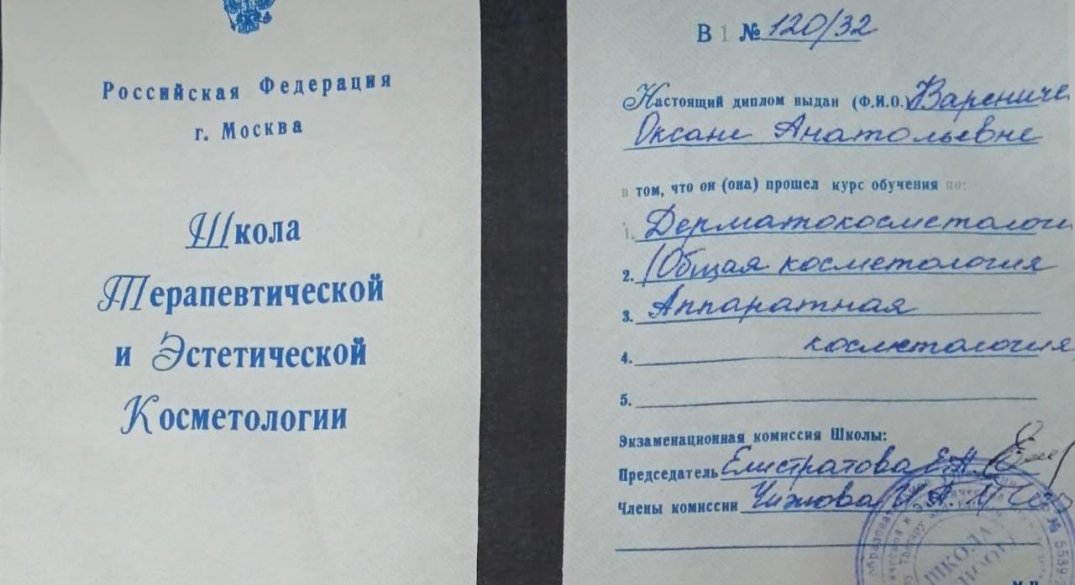 Российская Федерация
г. Москва
Школа
Терапевтической
и Эстетической
Косметологии
В 1 № 120/32
Настоящий диплом выдан (Ф.И.О.)Варениче
Оксане Анатольевне
в том, что он (она) прошел курс обучения по:
1. Дерматокосметологи
2. (Общая косметология
3. Аппаратная
4. косметология
5.
Экзаменационная комиссия Школы:
Председатель Елистратова Е.А
Члены комиссии Чижова
ШКОЛА
№ 5539
М.П.